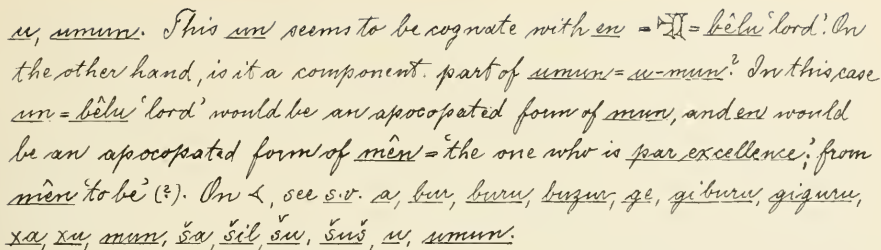 u, umun. This un seems to be cognate with en = 𒂗 = bêlu 'lord'. On
the other hand, is it a component part of umun = u-mun? In this case
un = bêlu 'lord' would be an apocopated form of mun, and en would
be an apocopated form of mên = 'the one who is par excellence,' from
mên 'to be' (?). On 𒌋, see s.v. a, bur, buru, buzur, ge, giburu, giguru,
xa, xu, mun, ša, šil, šu, šuš, u, umun.